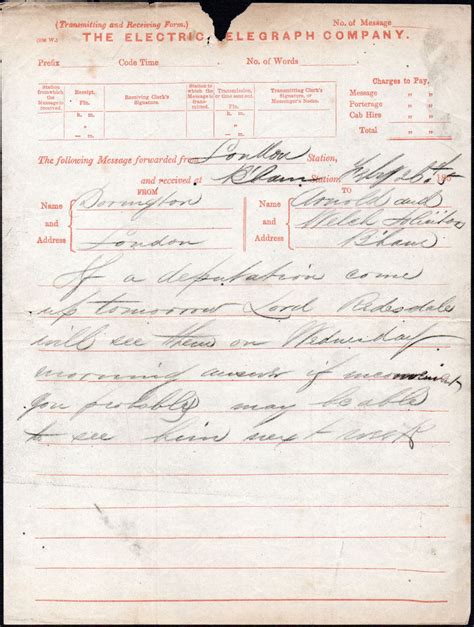 (Transmitting and Receiving Form.) No. of Message
(308 W.) THE ELECTRIC TELEGRAPH COMPANY.
Prefix Code Time No. of Words
Charges to Pay,
Message
Porterage
Cab Hire
Total
Station from which the Message is received
Receipt, Fin.
Receiving Clerk's Signature.
Station to which the Message is transmitted.
Transmission, or time sent out. Fin.
Transmitting Clerk's Signature, or Messenger's Name.
h. m. h. m.
h. m. h. m.
The following Message forwarded from London Station,
and received at B'ham Station, Feby 186
FROM TO
Name and Address
Dorington
London
Name and Address
Arnold and
Welch Solicitors
B'ham
If a deputation come
up tomorrow Lord Redesdale
will see them on Wednesday
morning answer if inconvenient
you probably may be able
to see him next week